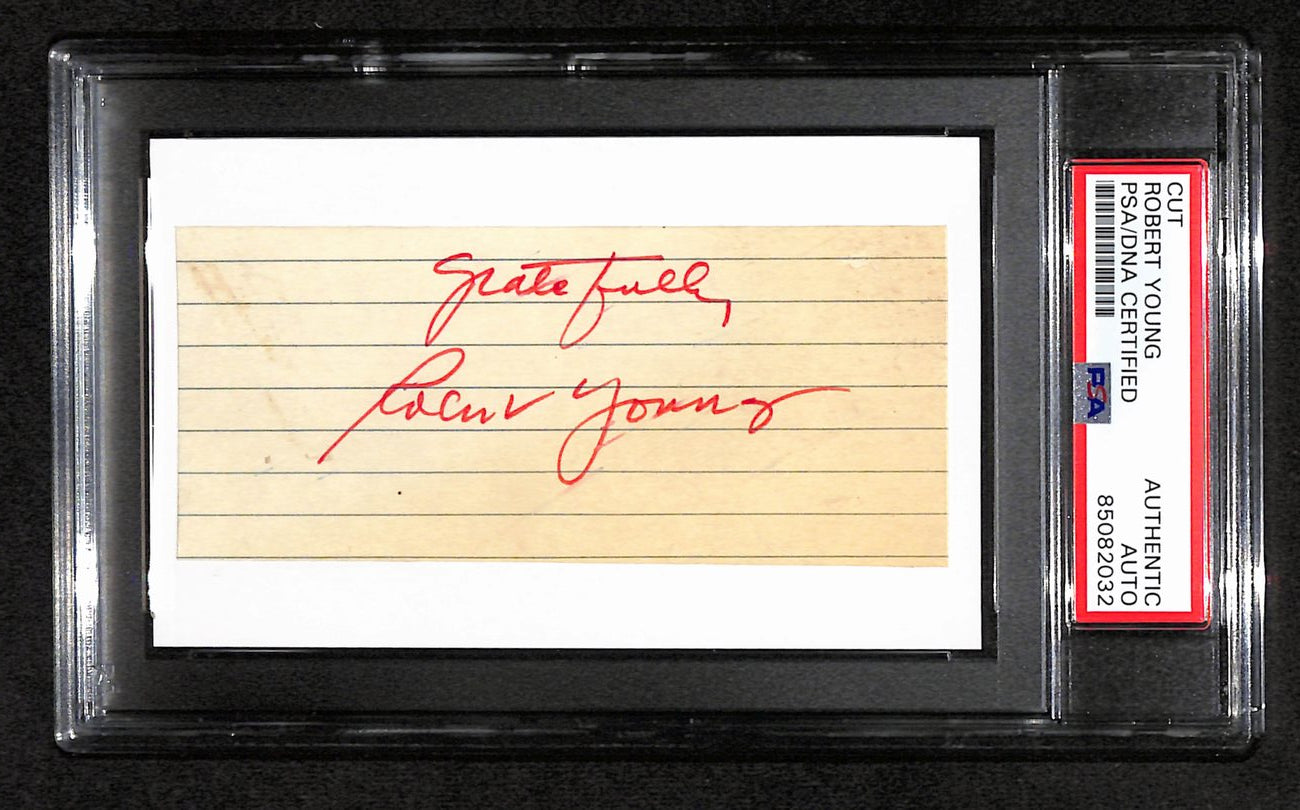 Gratefully,
Robert Young
CUT
ROBERT YOUNG
PSA/DNA CERTIFIED
PSA
AUTHENTIC
AUTO
85082032